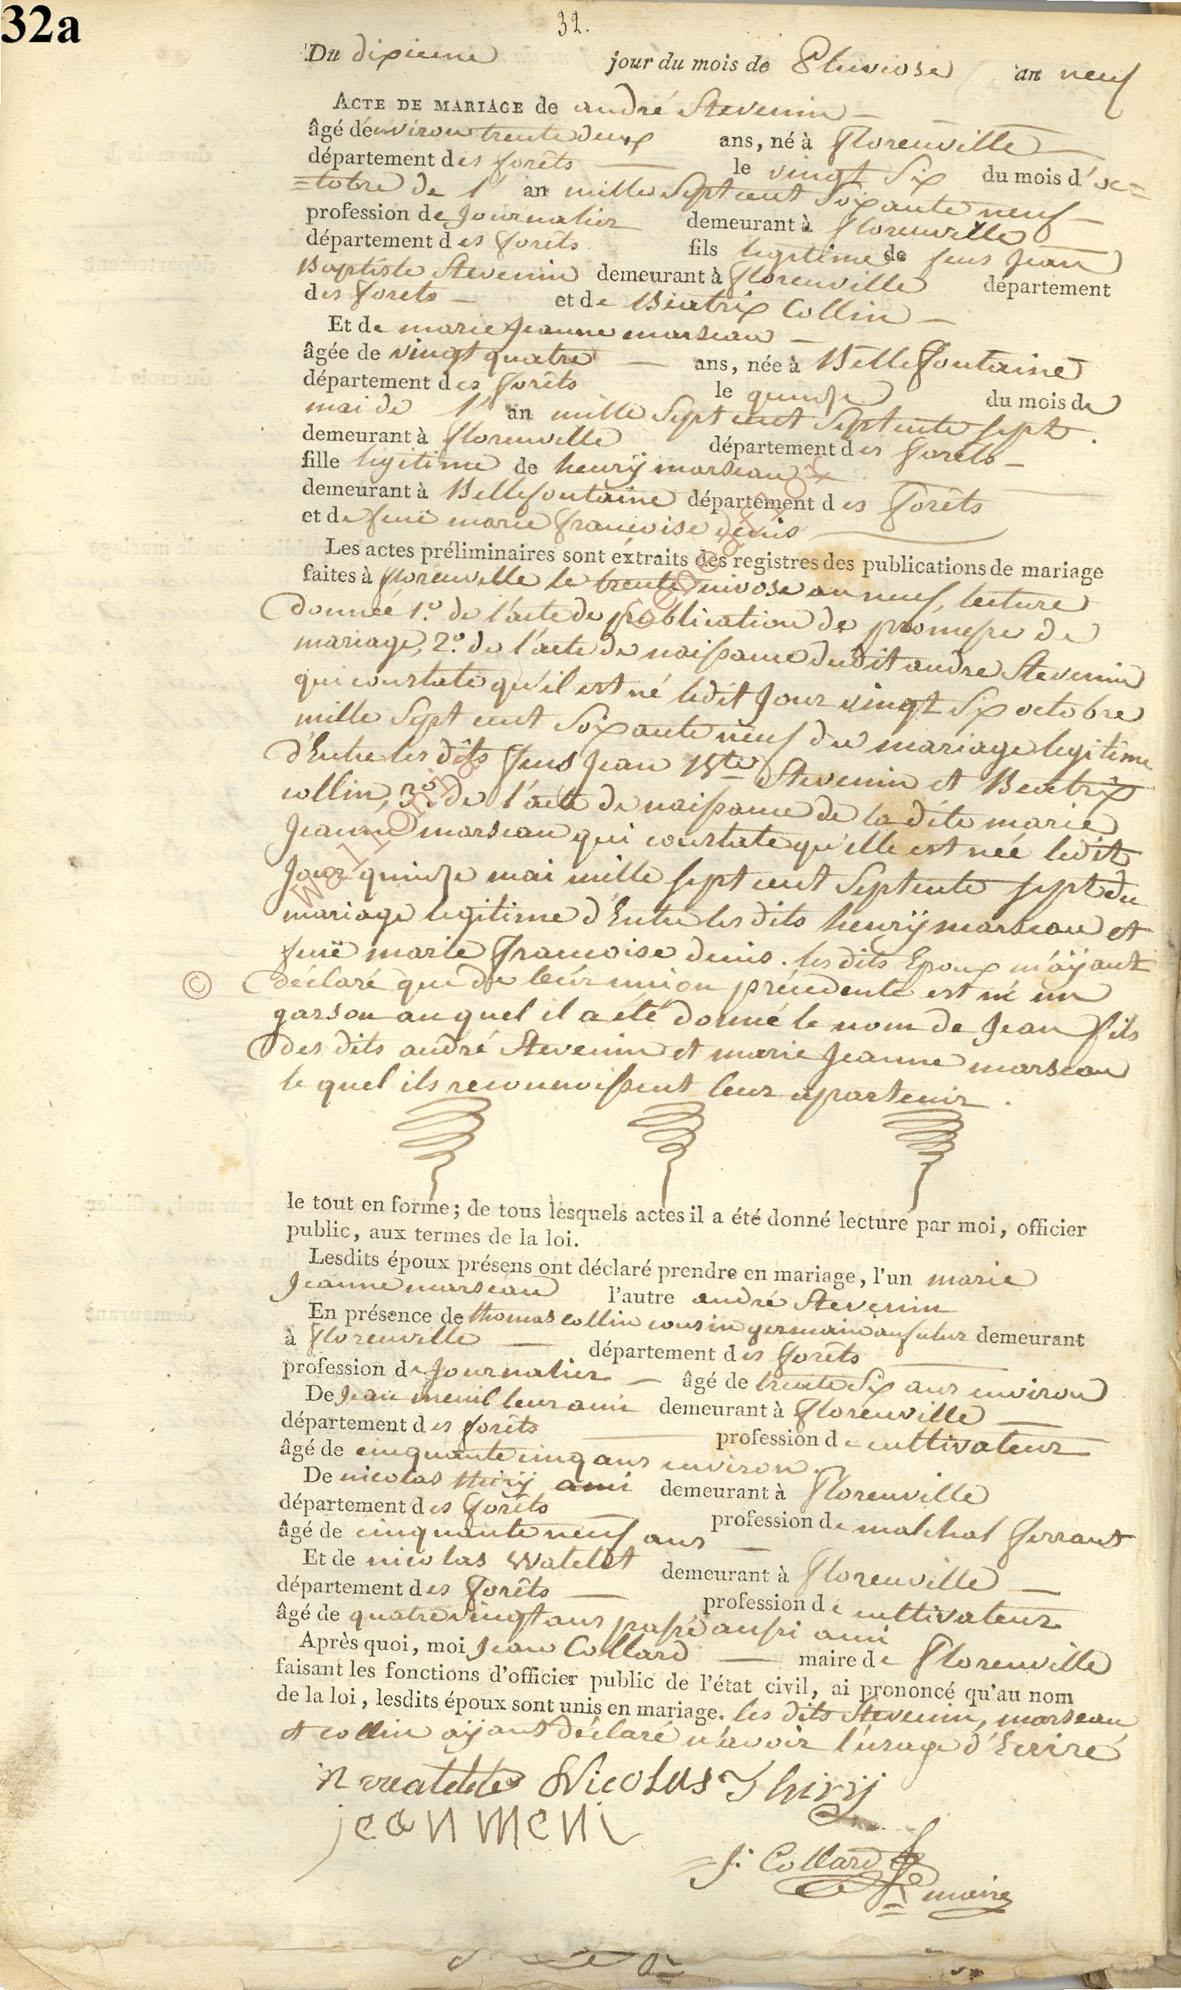 32a
32.
Du dixieme jour du mois de Pluviose an neuf
ACTE DE MARIAGE de andré Stevenin
âgé d'environ trente deux ans, né à florenville
département des forêts le vingt Six du mois d'oc=
=tobre de l'an mille Sept cent Soixante neuf
profession de Journalier demeurant à florenville
département des forêts fils legitime de feus Jean
Baptiste Stevenin demeurant à florenville département
des forets et de Béatrix Collin
Et de marie Jeanne marseau
âgée de vingt quatre ans, née à Bellefontaine
département des forêts le quinze du mois de
mai de l'an mille Sept cent Septente sept.
demeurant à florenville département des forêts
fille legitime de henrÿ marseau
demeurant à Bellefontaine département des forêts
et de feue marie francoise denis
Les actes préliminaires sont extraits des registres des publications de mariage
faites à florenville le trente nivose an neuf, lecture
donneé 1.º de l'acte de publication de promesse de
mariage, 2.º de l'acte de naissance dudit andre Stevenin
qui constate qu'il est né ledit Jour vingt Six octobre
mille Sept cent Soixante neuf du mariage legitime
d'Entre les dits feus Jean Bte Stevenin et Beatrix
collin, 3.º de l'acte de naissance de la dite marie
Jeanne marseau qui constate qu'elle est née ledit
Jour quinze mai mille sept cent Septente sept du
mariage legitime d'Entre les dits henrÿ marseau et
feuë marie francoise denis. les dits Epoux m'aÿant
déclaré que de leur union précedente est né un
garson auquel il a été donné le nom de Jean fils
des dits andré Stevenin et marie Jeanne marseau
le quel ils reconnoissent leur apartenir.
le tout en forme; de tous lesquels actes il a été donné lecture par moi, officier
public, aux termes de la loi.
Lesdits époux présens ont déclaré prendre en mariage, l'un marie
Jeanne marseau l'autre andré Stevenin
En présence de thomas collin cousin germain au futur demeurant
à florenville département des forêts
profession de Journalier âgé de trente Six ans environ
De Jean menil leur ami demeurant à florenville
département des forêts profession de cultivateur
âgé de cinquante cinq ans environ.
De nicolas thirÿ ami demeurant à florenville
département des forêts profession de malchal ferrant
âgé de cinquante neuf ans
Et de nicolas watelet demeurant à florenville
département des forêts profession de cultivateur
âgé de quatre vingt ans passé aussi ami
Après quoi, moi Jean Collard maire de florenville
faisant les fonctions d'officier public de l'état civil, ai prononcé qu'au nom
de la loi, lesdits époux sont unis en mariage. les dits Stevenin, marseau
et collin aÿant déclaré n'avoir l'usage d'Ecrire
Nicolas Thirÿ
jean meni
J: Collard
maire